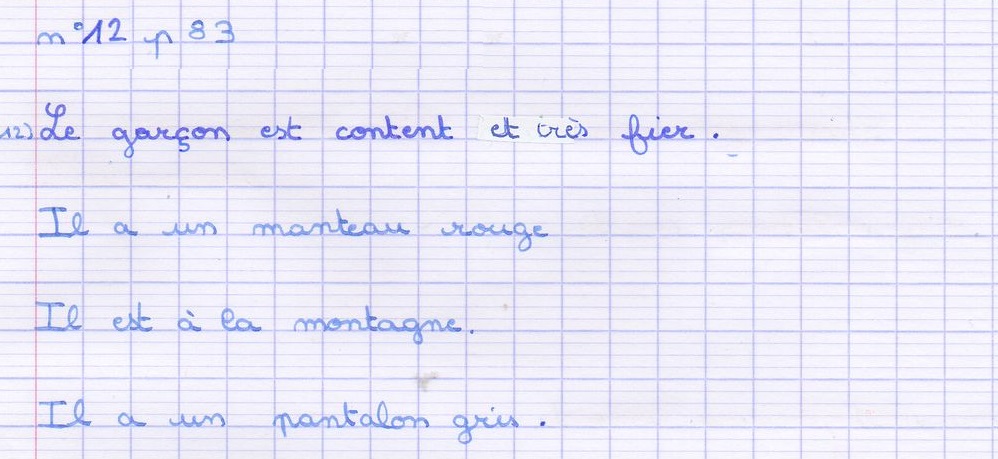 n°12 p 83
12) Le garçon est content et très fier.
Il a un manteau rouge
Il est à la montagne.
Il a un pantalon gris.